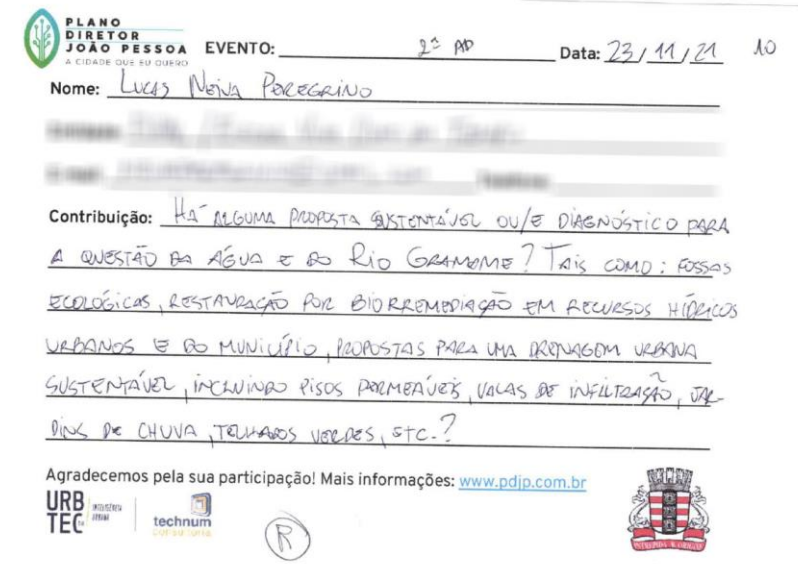 PLANO
DIRETOR
JOÃO PESSOA
A CIDADE QUE EU QUERO
EVENTO: 2ª AD Data: 23/11/21 10
Nome: LUCAS NEIVA PEREGRINO
Contribuição: HÁ ALGUMA PROPOSTA SUSTENTÁVEL OU/E DIAGNÓSTICO PARA
A QUESTÃO DA ÁGUA E DO RIO GRAMAME? TAIS COMO: FOSSAS
ECOLÓGICAS, RESTAURAÇÃO POR BIORREMEDIAÇÃO EM RECURSOS HÍDRICOS
URBANOS E DO MUNICÍPIO, PROPOSTAS PARA UMA DRENAGEM URBANA
SUSTENTÁVEL, INCLUINDO PISOS PERMEÁVEIS, VALAS DE INFILTRAÇÃO, JAR-
DINS DE CHUVA, TELHADOS VERDES, ETC.?
Agradecemos pela sua participação! Mais informações: www.pdjp.com.br
URB
TEC
INTELIGÊNCIA
URBANA
technum
CONSULTORIA
R
INTREPIDA AB ORIGINE